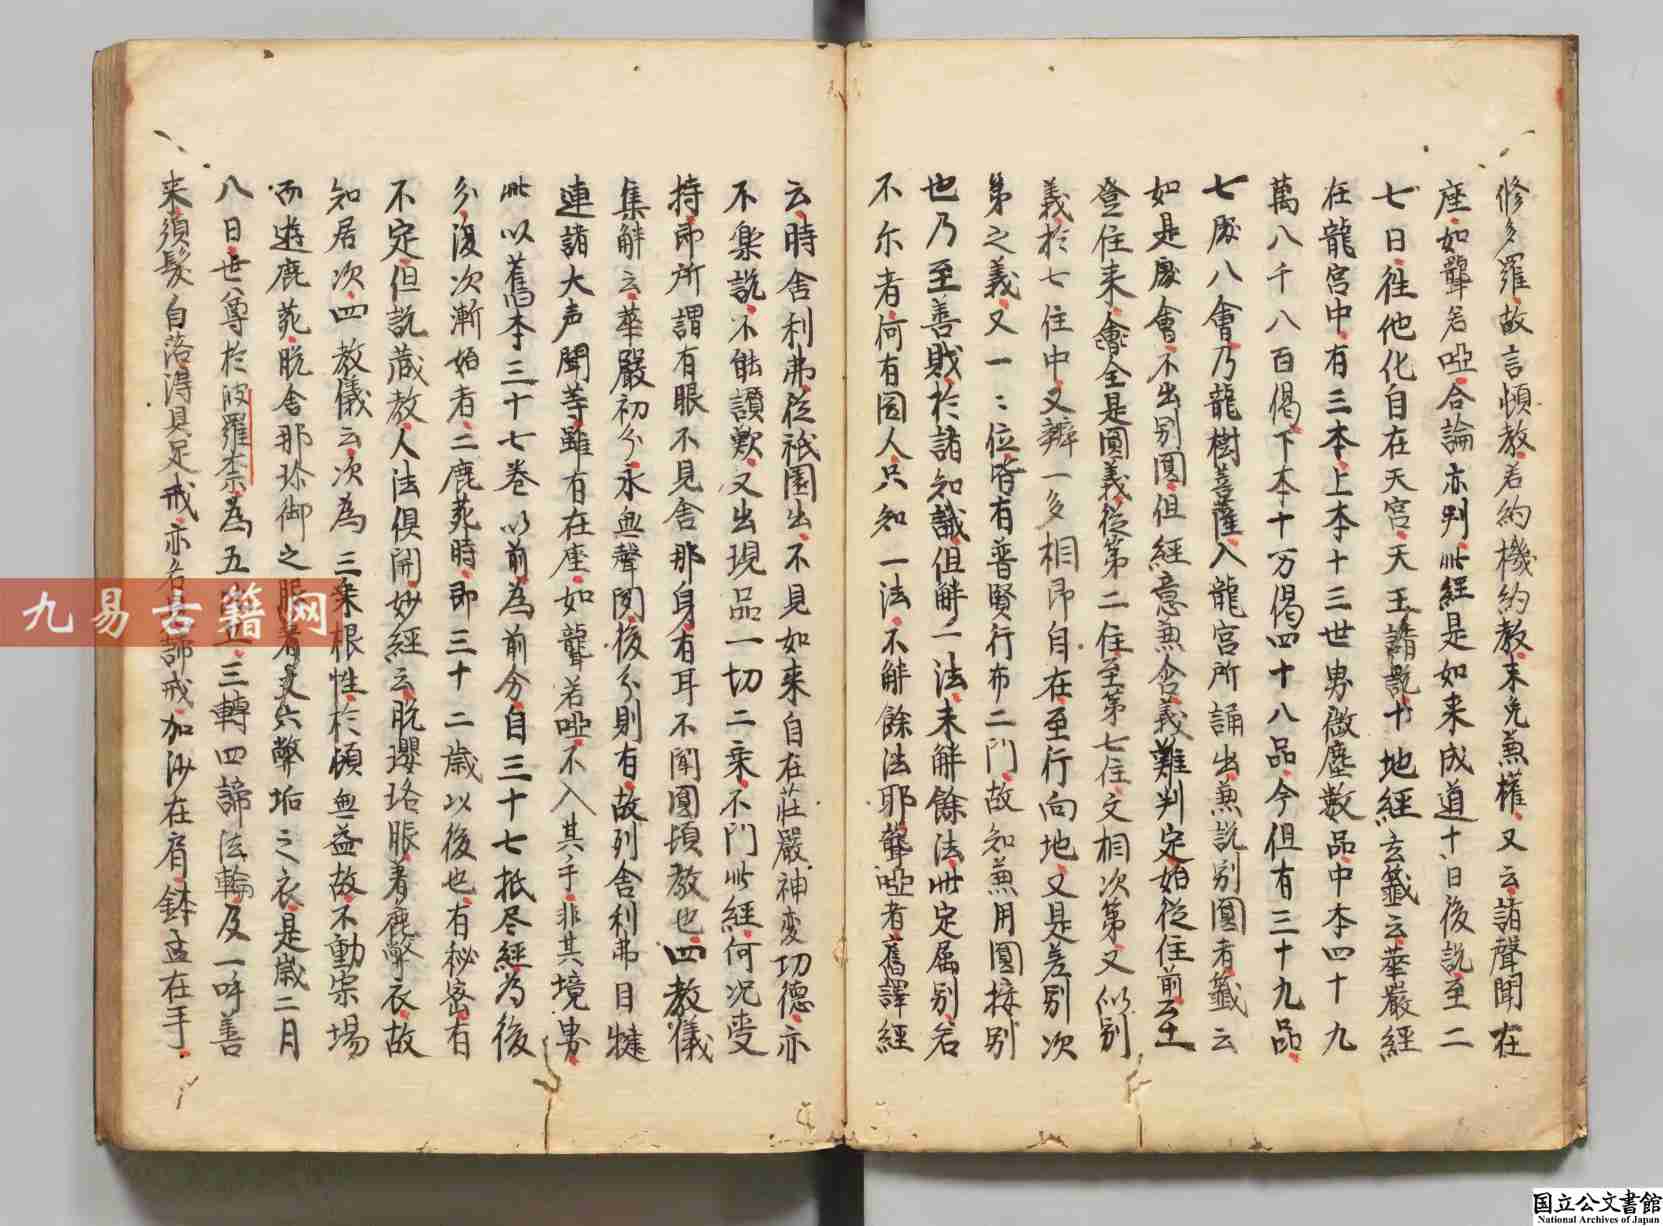 修多羅故言頓教若約機約教未免兼權又云諸聲聞在
座如聾若啞合論亦判此經是如来成道十日後説至二
七日往他化自在天宮天王請説十地經玄籤云華嚴經
在龍宮中有三本上本十三世界微塵數品中本四十九
萬八千八百偈下本十万偈四十八品今但有三十九品
七處八會乃龍樹菩薩入龍宮所誦出兼説別圓者籤云
如是處會不出別圓但經意兼含義難判定始從住前至
登住来會全是圓義從第二住至第七住文相次第又似別
義於七住中又辨一多相即自在至行向地又是差別次
第之義又一〻位皆有普賢行布二門故知兼用圓接別
也乃至善財於諸知識但解一法未解餘法此定属別若
不尓者何有圓人只知一法不解餘法耶聾啞者舊譯經
云時舎利弗從祇園出不見如来自在莊嚴神変功德亦
不楽説不能讃歎又出現品一切二乗不門此經何况受
持即所謂有眼不見舎那身有耳不聞圓頓教也四教儀
集解云華嚴初分永無聲聞後分則有故列舎利弗目犍
連諸大声聞等雖有在座如聾若啞不入其手非其境界
此以舊本三十七巻以前為前分自三十七抵尽經為後
分後次漸始者二鹿菀時即三十二歳以後也有秘密有
不定但説蔵教人法俱開妙經云脱瓔珞脹着麁弊衣故
知居次四教儀云次為三乗根性於頓無益故不動宗場
而遊鹿菀脱舎那珍御之服着丈六弊垢之衣是歳二月
八日世尊於波羅柰為五三轉四諦法輪及一呼善
来須髪自落得具足戒亦名諦戒加沙在肩鉢盂在手
九易古籍网
国立公文書館
National Archives of Japan